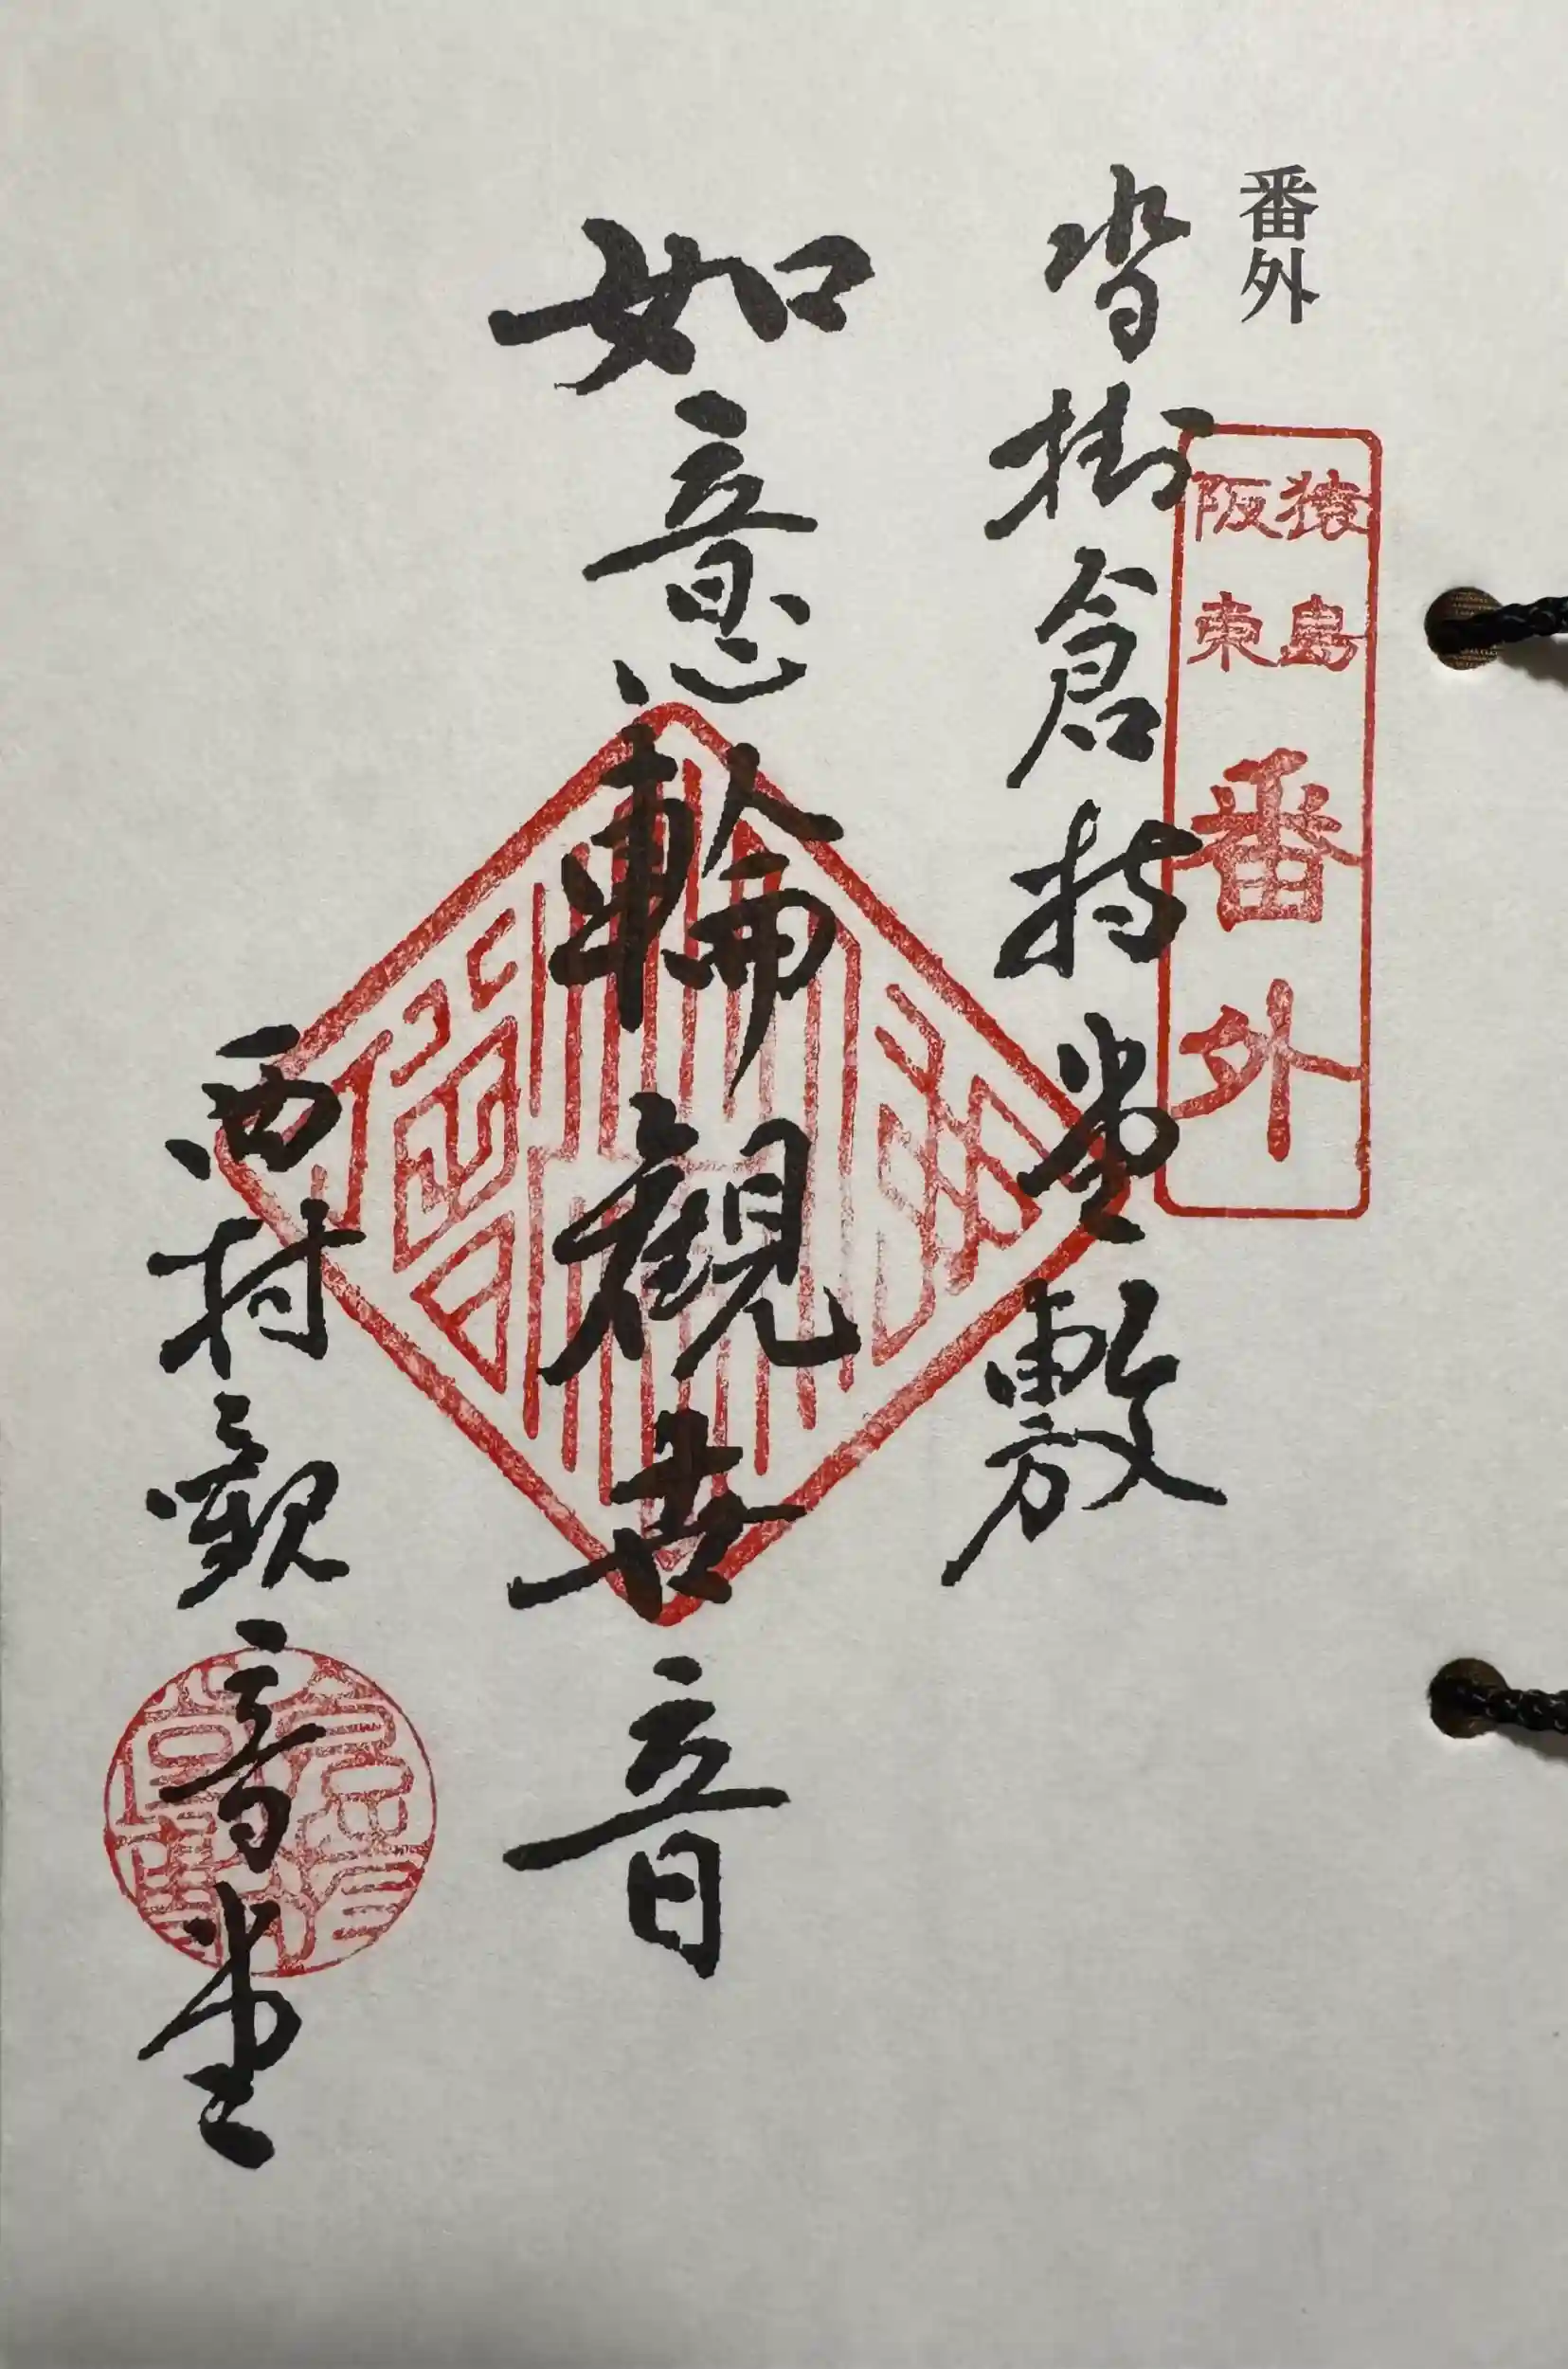 番外
猿島
阪東
番外
沓掛倉持堂敷
如意輪観世音
西村觀音堂